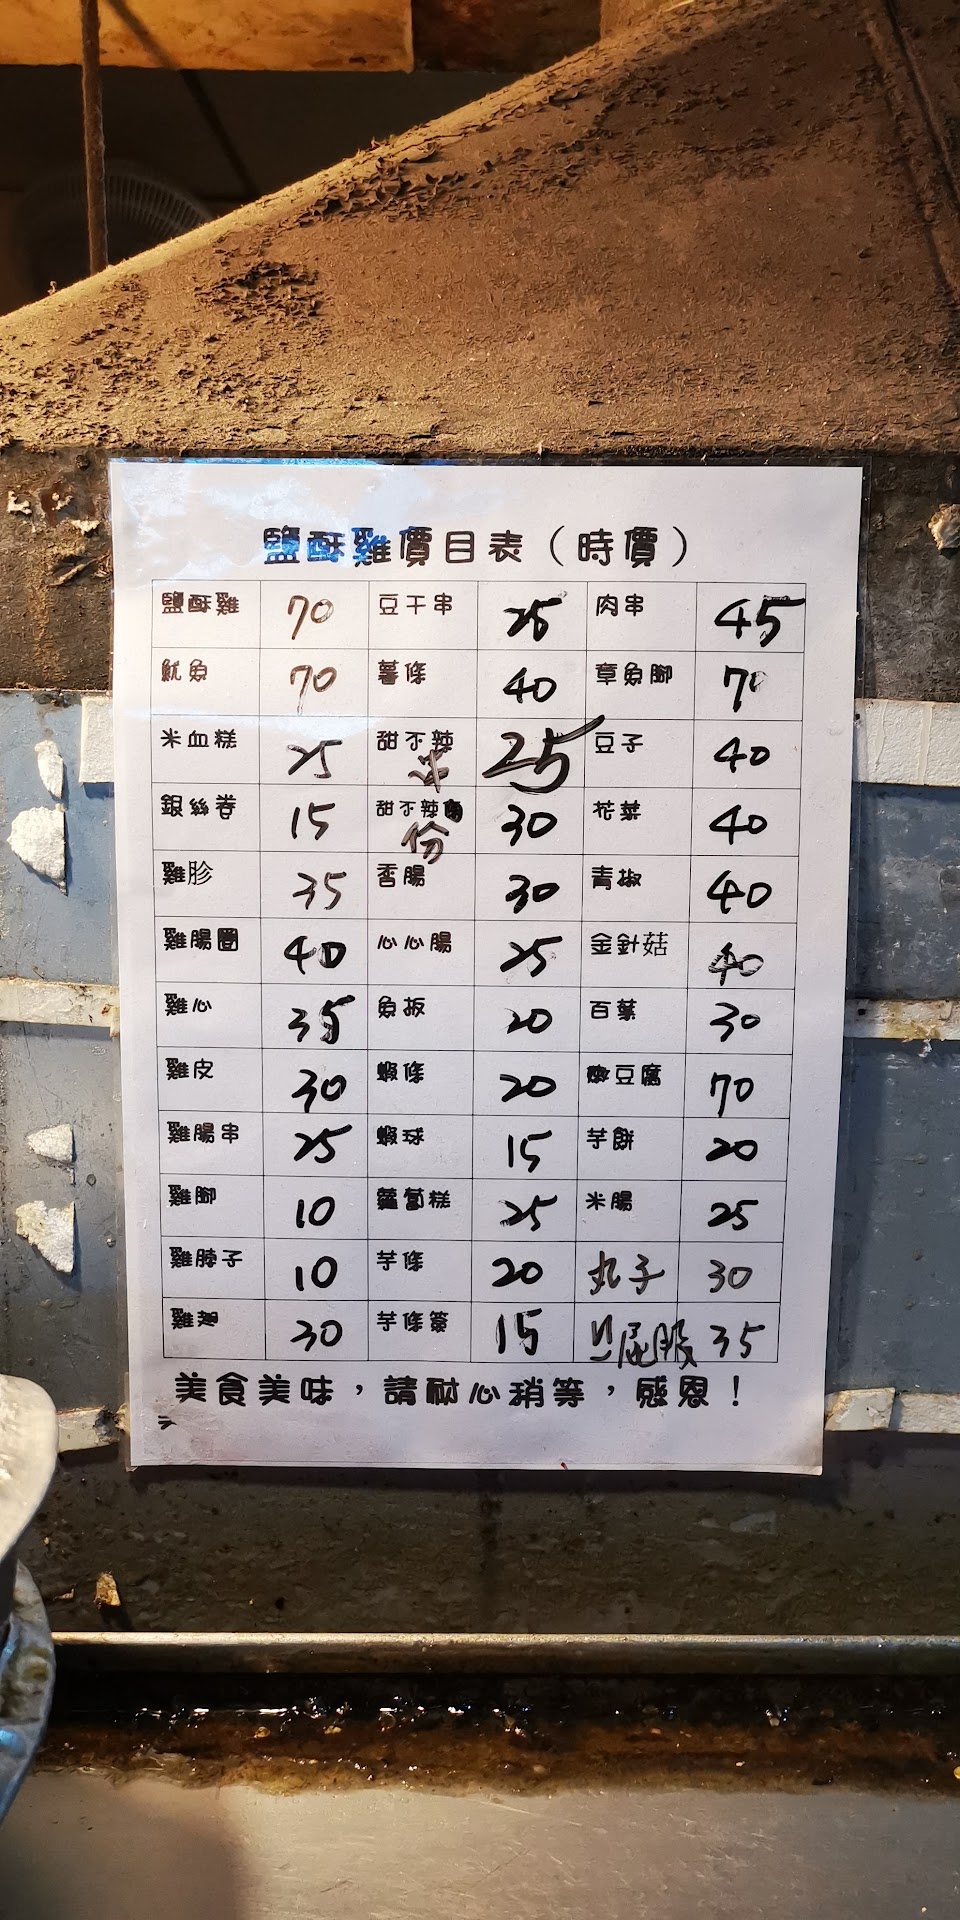 鹽酥雞價目表（時價）
鹽酥雞 70 豆干串 25 肉串 45
魷魚 70 薯條 40 章魚腳 70
米血糕 25 甜不辣 25 豆子 40
銀絲卷 15 甜不辣 份 30 花菜 40
雞胗 35 香腸 30 青椒 40
雞腸圈 40 心心腸 25 金針菇 40
雞心 35 魚板 20 百葉 30
雞皮 30 蝦條 20 嫩豆腐 70
雞腸串 25 蝦球 15 芋餅 20
雞腳 10 蘿蔔糕 25 米腸 25
雞脖子 10 芋條 20 丸子 30
雞翅 30 芋條簽 15 屁股 35
美食美味，請耐心稍等，感恩！